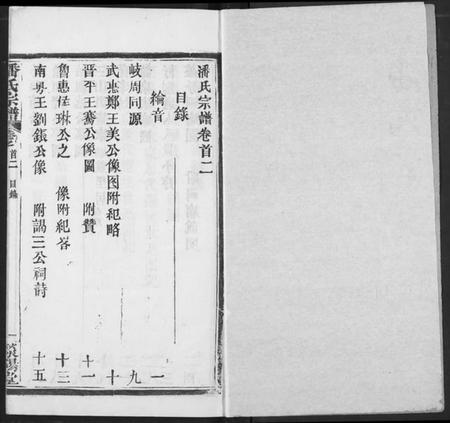 潘氏宗譜卷首二
目錄
綸音 一
岐周同源 九
武惠鄭王美公像图附紀略 十
晋平王騫公像圖 附贊 十一
魯惠侯琳公之 像附紀畧 十三
南粤王劉鋹公像 附謁三公祠詩 十五
潘氏宗譜 卷首二 目錄 一